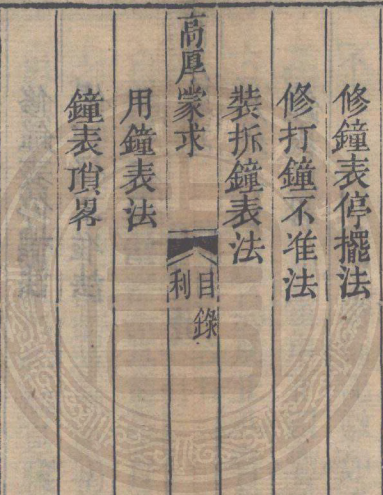 修鐘表停擺法
修打鐘不准法
裝拆鐘表法
高厚蒙求
目錄
利
用鐘表法
鐘表湏畧